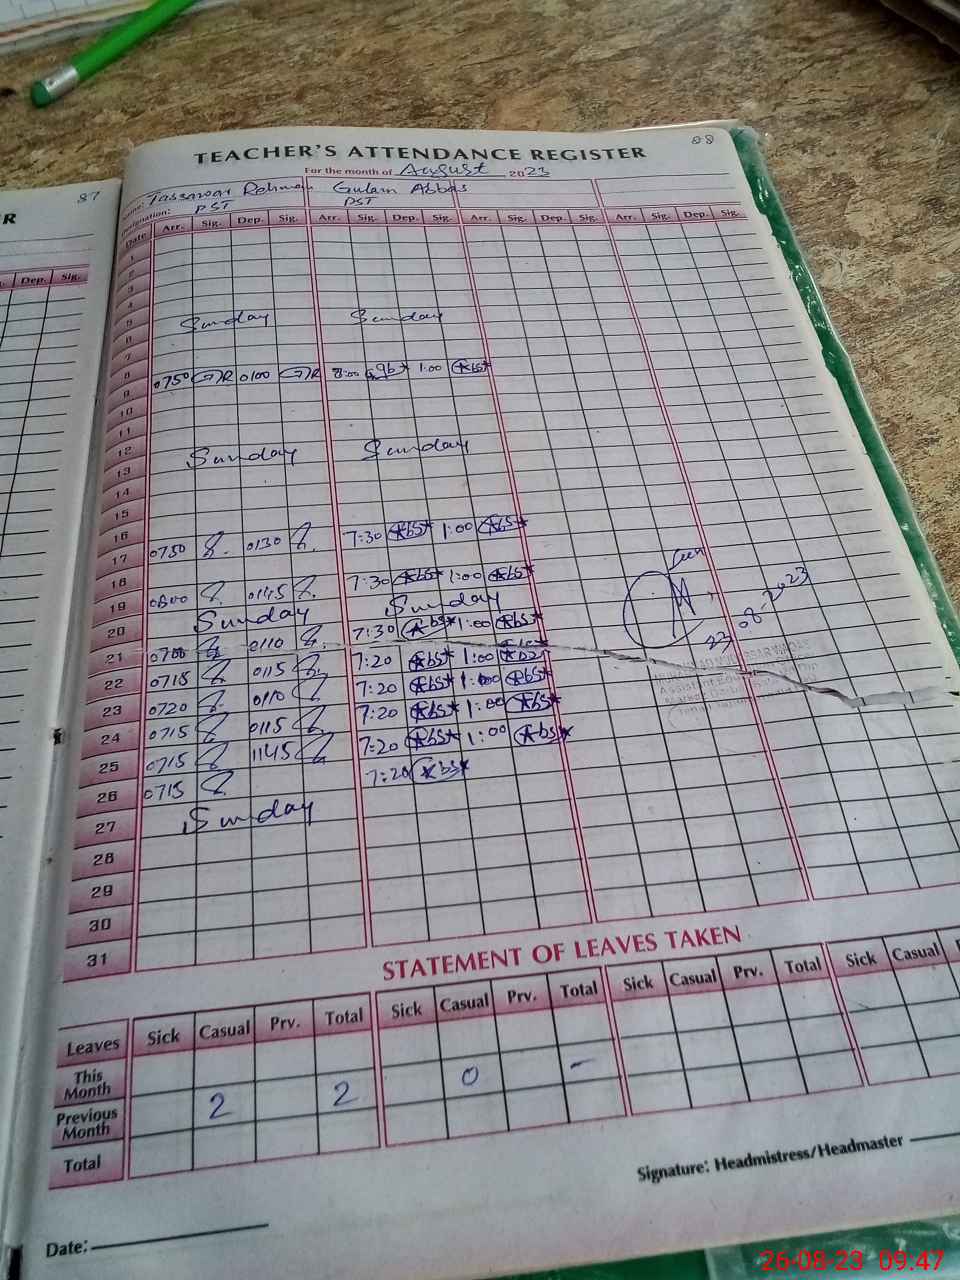 87
08
TEACHER'S ATTENDANCE REGISTER
For the month of August 2023
Name: Tassawar Rehman Gulam Abbas
Designation: PST PST
R
Dep. Sig.
Date Arr. Sig. Dep. Sig. Arr. Sig. Dep. Sig. Arr. Sig. Dep. Sig. Arr. Sig. Dep. Sig.
1
2
3
4
5
6 Sunday Sunday
7
8 0750 GR 0100 GR 8:00 1:00
9
10
11
12
13 Sunday Sunday
14
15
16 0730 0130 7:30 1:00
17
18 0800 0145 7:30 1:00
19 Sunday Sunday
20 0700 0110 7:30 1:00
21 0715 0115 7:20 1:00
22 0720 0110 7:20 1:00
23 0715 0115 7:20 1:00
24 0715 1145 7:20 1:00
25 0715 7:20
26
27 Sunday
28
29
30
31
23-08-2023
STATEMENT OF LEAVES TAKEN
Leaves Sick Casual Prv. Total Sick Casual Prv. Total Sick Casual Prv. Total Sick Casual
This Month 0 -
Previous Month 2 2
Total
Signature: Headmistress/Headmaster
Date:
26-08-23 09:47